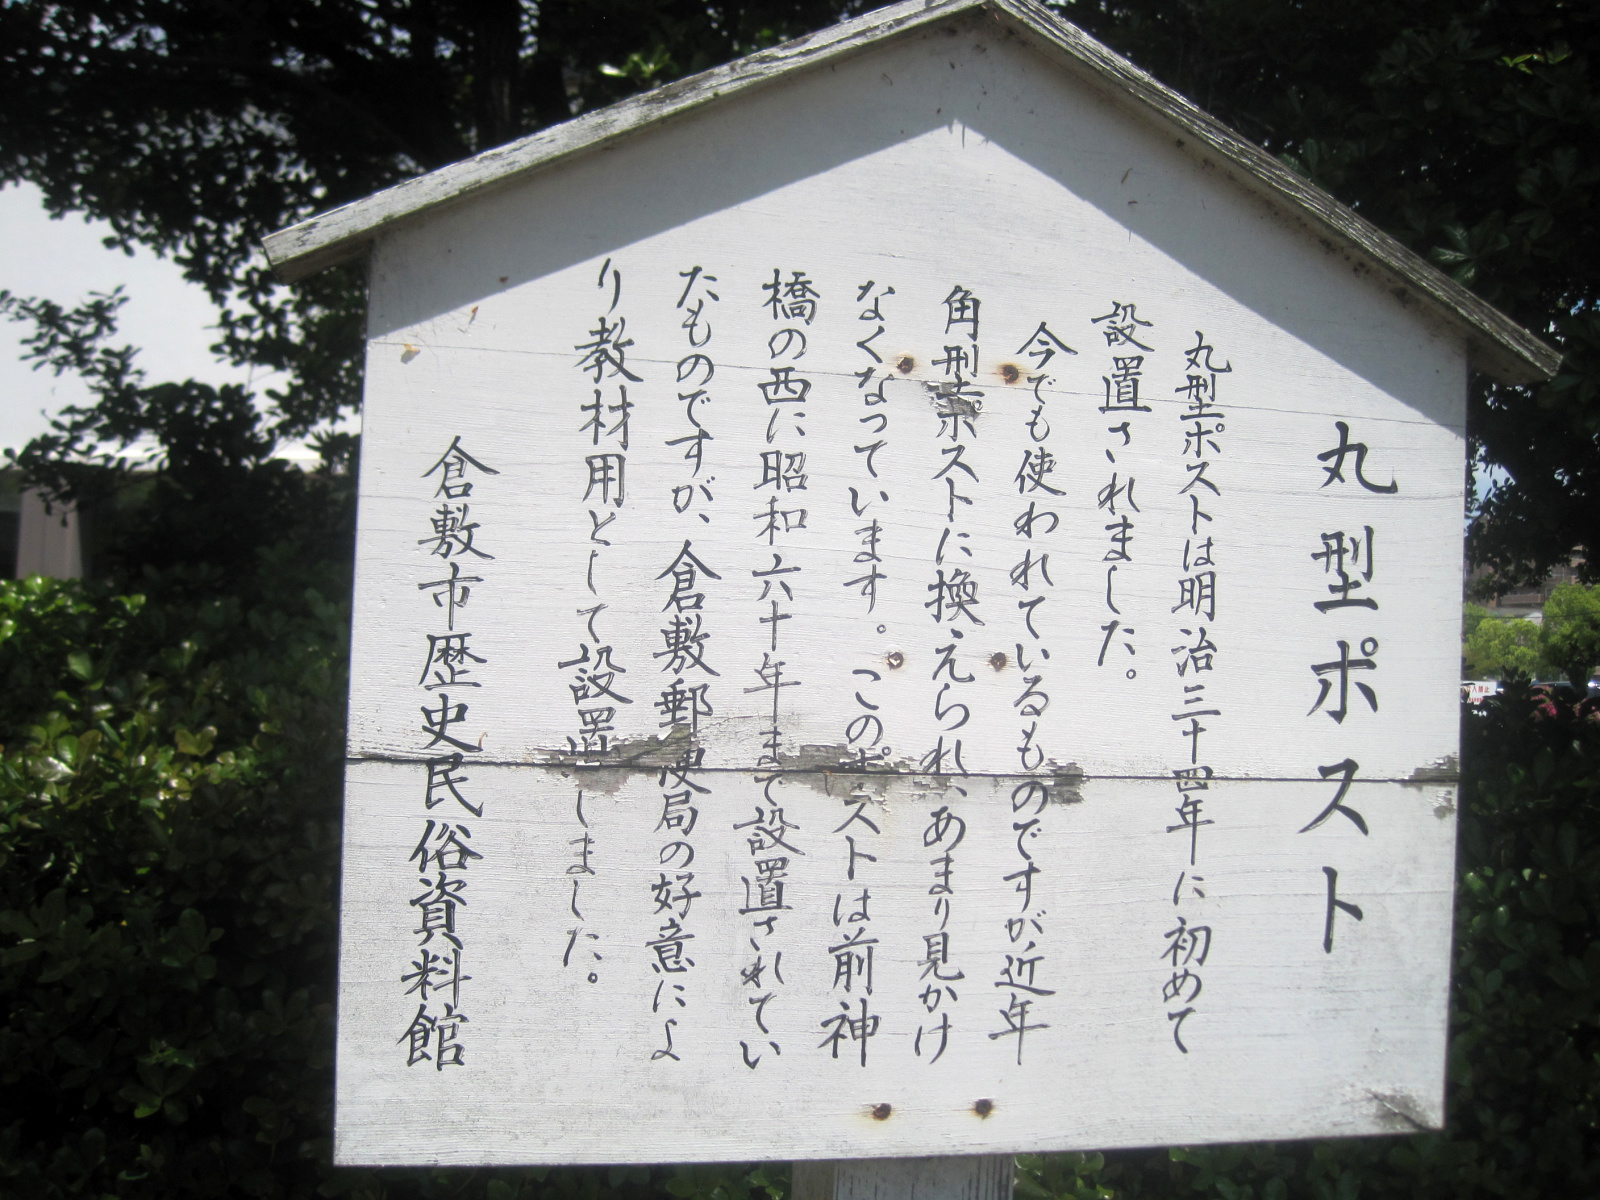 丸型ポスト
丸型ポストは明治三十四年に初めて
設置されました。
今でも使われているものですが近年
角型ポストに換えられ、あまり見かけ
なくなっています。このポストは前神
橋の西に昭和六十年まで設置されてい
たものですが、倉敷郵便局の好意によ
り教材用として設置しました。
倉敷市歴史民俗資料館